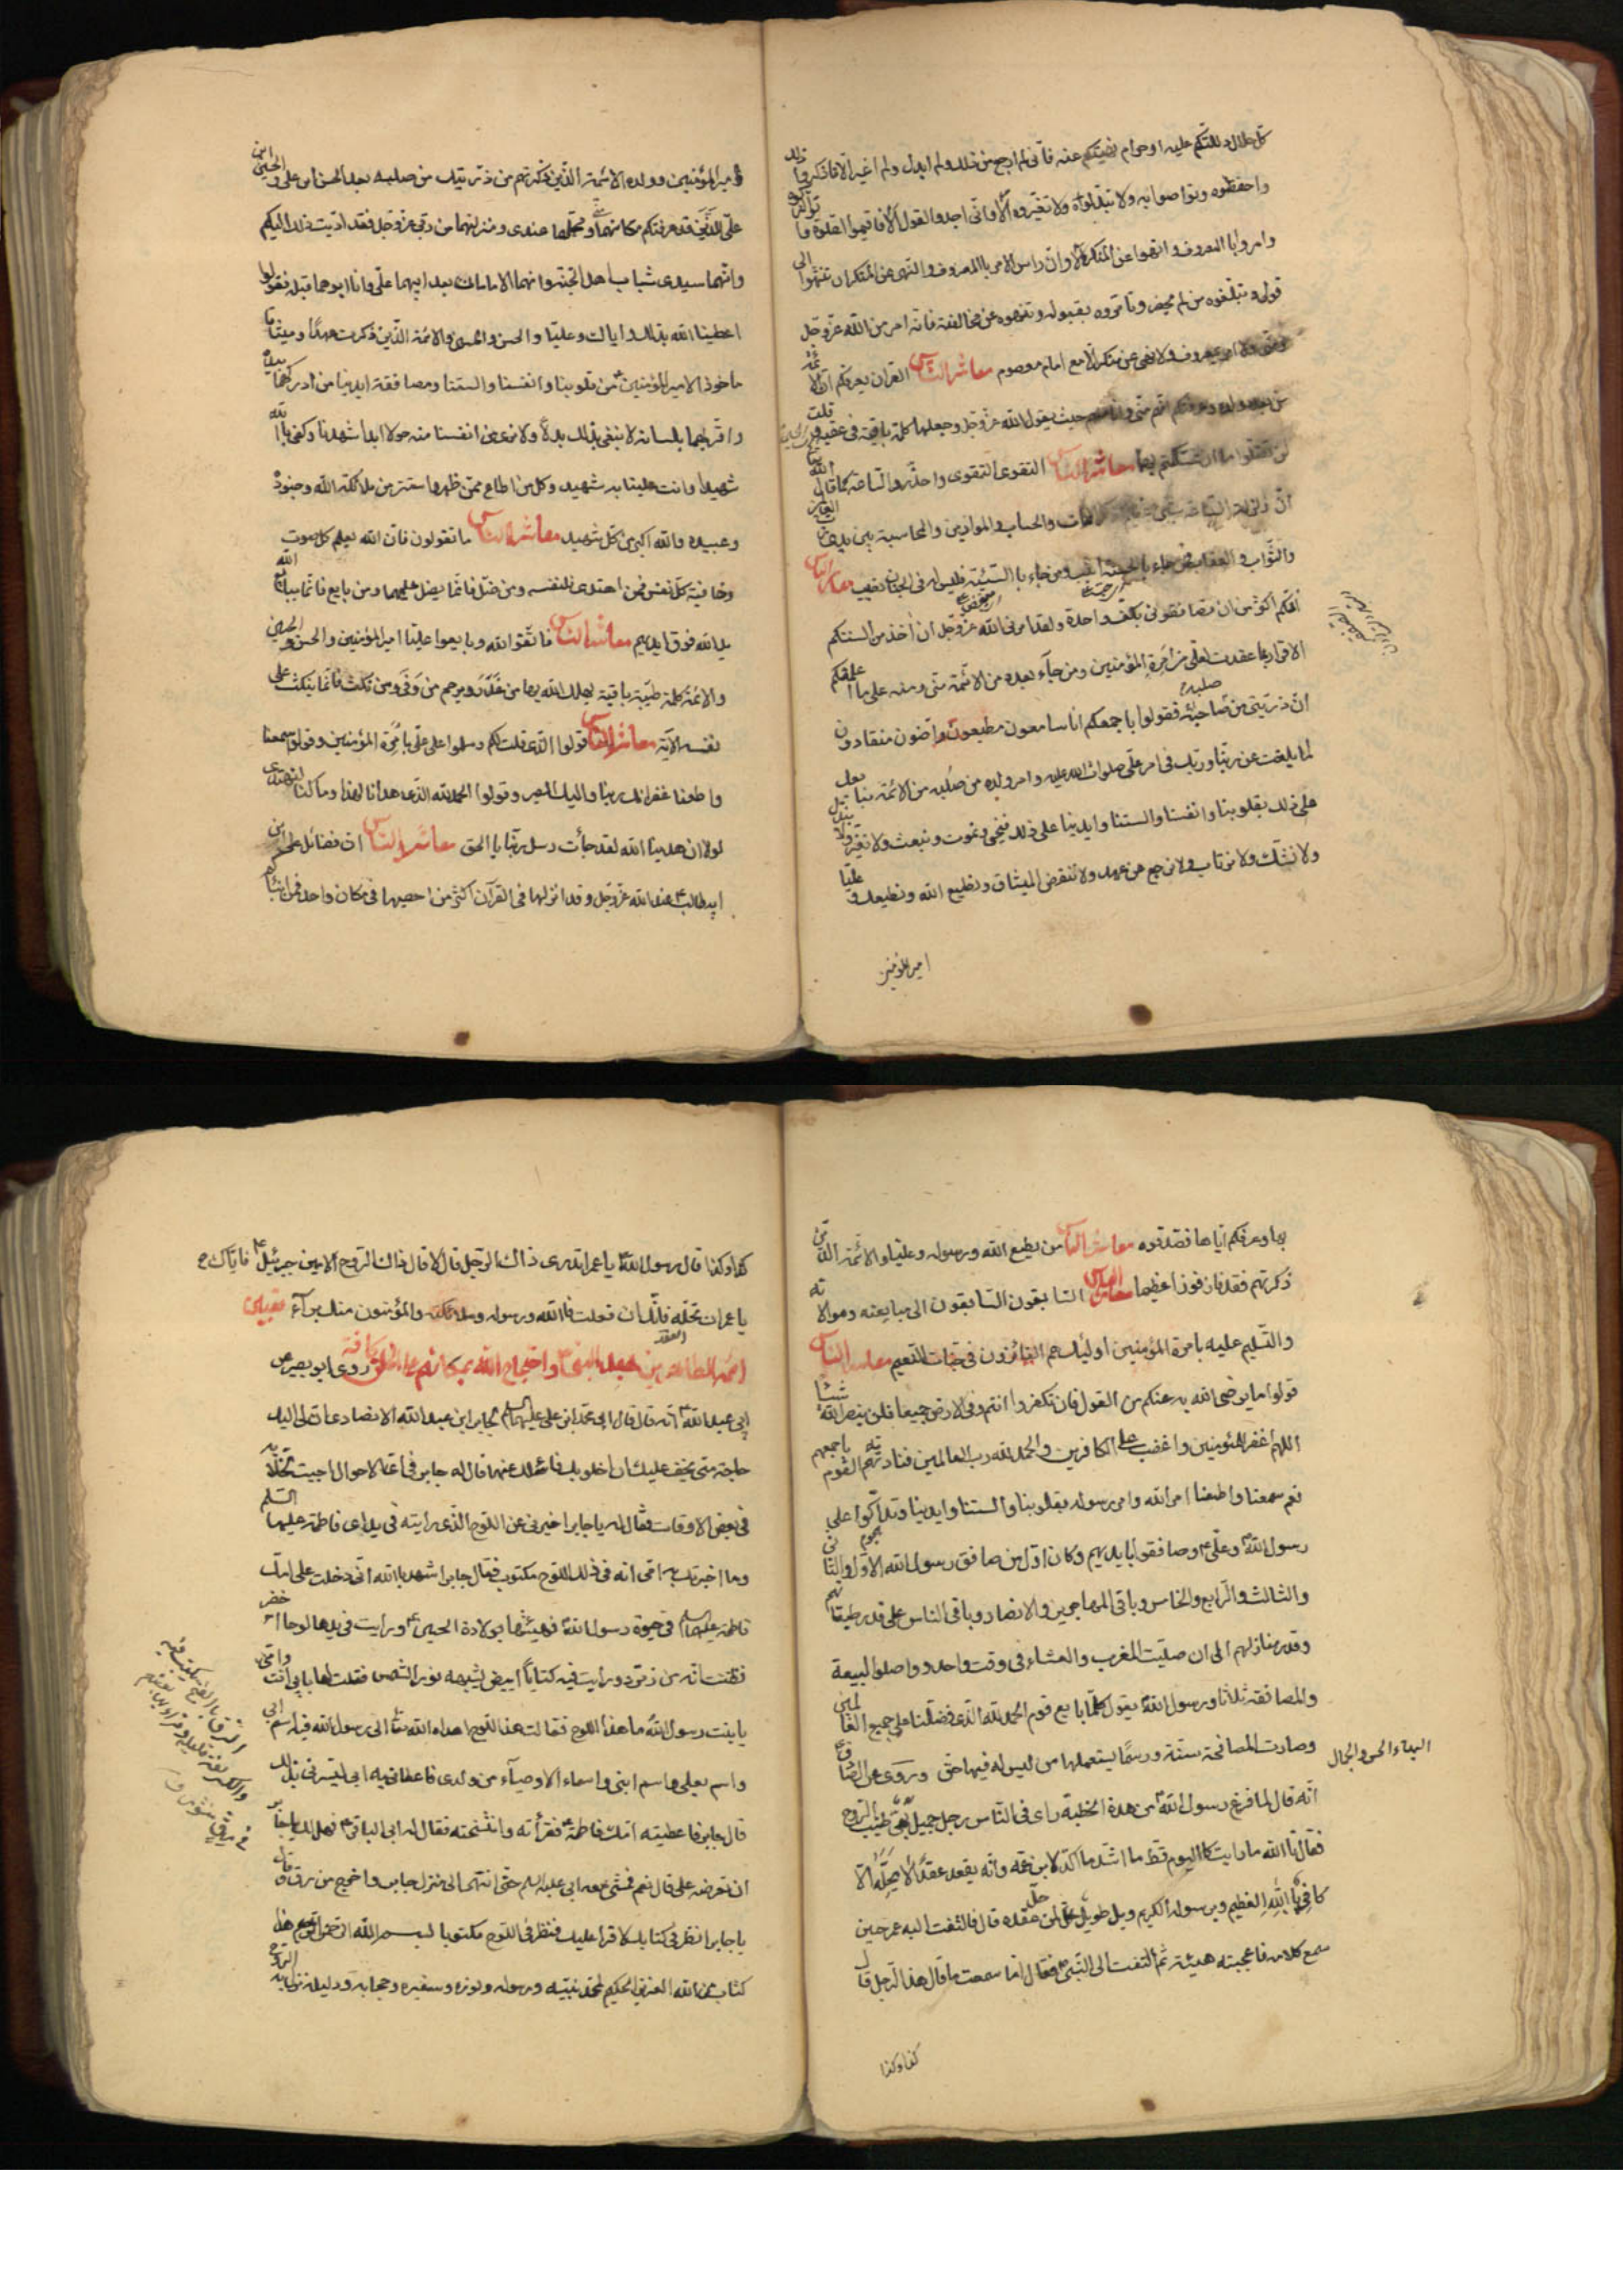 كل حلال دللتكم عليه او حرام نهيتكم عنه فانى لم ارجع عن ذلك ولم ابدل ولم اغير الا فاذكروا ذلك
واحفظوه وتواصوا به ولا تبدلوه ولا تغيروه الا وانى اجدد القول الا فاقيموا الصلوة واتوا الزكوة
وامروا بالمعروف وانهوا عن المنكر الا وان راس الامر بالمعروف والنهى عن المنكر ان تنتهوا الى
قولى وتبلغوه من لم يحضر وتامروه بقبوله وتنهوه عن مخالفته فانه امر من الله عز وجل
ومنى ولا امر بمعروف ولا نهى عن منكر الا مع امام معصوم معاشر الناس القران يعرفكم ان الائمة
من بعده ولده وعرفتكم انهم منى وانا منه حيث يقول الله عز وجل وجعلها كلمة باقية فى عقبه وقلت
لن تضلوا ما ان تمسكتم بهما معاشر الناس التقوى التقوى واحذروا الساعة كما قال الله
ان زلزلة الساعة شىء عظيم والحساب والموازين والمحاسبة بين يدى رب العالمين
والثواب والعقاب فمن جاء بالحسنة اثيب ومن جاء بالسيئة فليس له فى الجنان نصيب معاشر الناس
انكم اكثر من ان تصافقونى بكف واحدة ولقد امرنى الله عز وجل ان اخذ من السنتكم
الاقرار بما عقدت لعلى من امرة المؤمنين ومن جآء بعده من الائمة منى ومنه على ما اعلمتكم
ان ذريتى من صلبه فقولوا باجمعكم انا سامعون مطيعون راضون منقادون
لما بلغت عن ربنا وربك فى امر على صلوات الله عليه وامر ولده من صلبه من الائمة نبايعك
على ذلك بقلوبنا وانفسنا والسنتنا وايدينا على ذلك نحيى ونموت ونبعث ولا نغير ولا نبدل
ولا نشك ولا نرتاب ولا نرجع عن عهد ولا ننقض الميثاق ونطيع الله ونطيعك وعليا
امير المؤمنين
امير المؤمنين وولده الائمة الذين ذكرتهم من ذريتك من صلبه بعد الحسن ابن على والحسين ابن
على الذين قد عرفتكم مكانهما ومحلهما عندى ومنزلتهما من ربى عز وجل فقد اديت ذلك اليكم
وانهما سيدى شباب اهل الجنة وانهما الامامان بعد ابيهما على وانا ابوهما قبله فقولوا
اعطينا الله بذلك واياك وعليا والحسن والحسين والائمة الذين ذكرت عهدا وميثاقا
ماخوذا لامير المؤمنين من قلوبنا وانفسنا والسنتنا ومصافقة ايدينا من ادركهما بيده
واقر بهما بلسانه لا نبغى بذلك بدلا ولا نرى من انفسنا عنه حولا ابدا شهدنا وكفى بالله
شهيدا وانت علينا به شهيد وكل من اطاع ممن ظهر واستتر من ملائكة الله وجنوده
وعبيده والله اكبر من كل شهيد معاشر الناس ما تقولون فان الله يعلم كل صوت
وخافية كل نفس فمن اهتدى فلنفسه ومن ضل فانما يضل عليها ومن بايع فانما يبايع الله
يد الله فوق ايديهم معاشر الناس فاتقوا الله وبايعوا عليا امير المؤمنين والحسن والحسين
والائمة كلمة طيبة باقية يهلك الله بها من غدر ويرحم من وفى ومن نكث فانما ينكث على
نفسه الآية معاشر الناس قولوا الذى قلت لكم وسلموا على على بامرة المؤمنين وقولوا سمعنا
واطعنا غفرانك ربنا واليك المصير وقولوا الحمد لله الذى هدانا لهذا وما كنا لنهتدى
لولا ان هدينا الله لقد جاءت رسل ربنا بالحق معاشر الناس ان فضائل على ابن
ابيطالب عند الله عز وجل وقد انزلها فى القرآن اكثر من احصيها فى مكان واحد فمن انبأكم
بها وعرفكم اياها فصدقوه معاشر الناس من يطيع الله ورسوله وعليا والائمة الذين
ذكرتهم فقد فاز فوزا عظيما معاشر الناس السابقون السابقون الى مبايعته وموالاته
والتسليم عليه بامرة المؤمنين اوليك هم الفائزون فى جنات النعيم معاشر الناس
قولوا ما يرضى الله به عنكم من القول فان تكفروا انتم وفى الارض جميعا فلن يضر الله شيئا
اللهم اغفر للمؤمنين واغضب على الكافرين والحمد لله رب العالمين فنادته القوم باجمعهم
نعم سمعنا واطعنا امر الله وامر رسوله بقلوبنا والسنتنا وايدينا وتداكوا على
رسول الله وعلى وصافقوا بايديهم وكان اول من صافق رسول الله الاول والثانى
والثالث والرابع والخامس وباقى المهاجرين والانصار وباقى الناس على قدر طبقاتهم
وقدر منازلهم الى ان صليت المغرب والعشاء فى وقت واحد وواصلوا البيعة
والمصافقة ثلاثا ورسول الله يقول كلما بايع قوم الحمد لله الذى فضلنا على جميع العالمين
وصارت المصافحة سنة ورسما يستعملها من ليس له فيها حق وروى عن الصادق
البهاء الحسن والجمال
انه قال لما فرغ رسول الله من هذه الخطبة راى فى الناس رجل جميل بهى طيب الروح
فقال تا الله ما رايت كاليوم قط ما اشد ما اكد لابن عمه وانه يعقد عقدا لا يحله الا
كافر بالله العظيم وبرسوله الكريم ويل طويل لمن حل عقده قال فالتفت اليه عمر حين
سمع كلامه فاعجبته هيئته ثم التفت الى النبى فقال اما سمعت ما قال هذا الرجل قال
كذا وكذا
كذا وكذا قال رسول الله يا عمر اتدرى ذاك الرجل قال لا قال ذاك الروح الامين جبرئيل فاياك
يا عمر ان تحله فانك ان فعلت فالله ورسوله وملائكته والمؤمنون منك برآء تعيين
روى ابو بصير عن
ابى عبد الله انه قال قال ابى محمد ابن على عليهما السلم لجابر ابن عبد الله الانصارى ان لى اليك
حاجة متى يخف عليك ان اخلو بك فاسئلك عنها قال له جابر فى اى الاحوال احببت فخلا به
فى بعض الاوقات فقال له يا جابر اخبرنى عن اللوح الذى رايته فى يد امى فاطمة عليها السلم
وما اخبرتك به امى انه فى ذلك اللوح مكتوب فقال جابر اشهد بالله انى دخلت على امك
فاطمة عليها السلم فى حيوة رسول الله فهنيتها بولادة الحسين ورايت فى يدها لوحا اخضر
فظننت انه من زمرد ورايت فيه كتابا ابيض يشبهه نور الشمس فقلت لها بابى انت وامى
يا بنت رسول الله ما هذا اللوح فقالت هذا اللوح اهداه الله الى رسول الله فيه اسم ابى
واسم بعلى واسم ابنى واسماء الاوصيآء من ولدى فاعطانيه ابى ليسرنى بذلك
قال جابر فاعطيته امك فاطمة فقرأته وانتسخته فقال له ابى الباقر فهل لك يا جابر
ان تعرضه على قال نعم فمشى معه ابى عليه السلم حتى انتهى الى منزل جابر واخرج من رق قال
يا جابر انظر فى كتابك لاقرا عليك فنظر فى اللوح مكتوبا بسم الله الرحمن الرحيم هذا
كتاب من الله العزيز الحكيم لمحمد نبيه ورسوله ونوره وسفيره وحجابه ودليله نزل به الروح